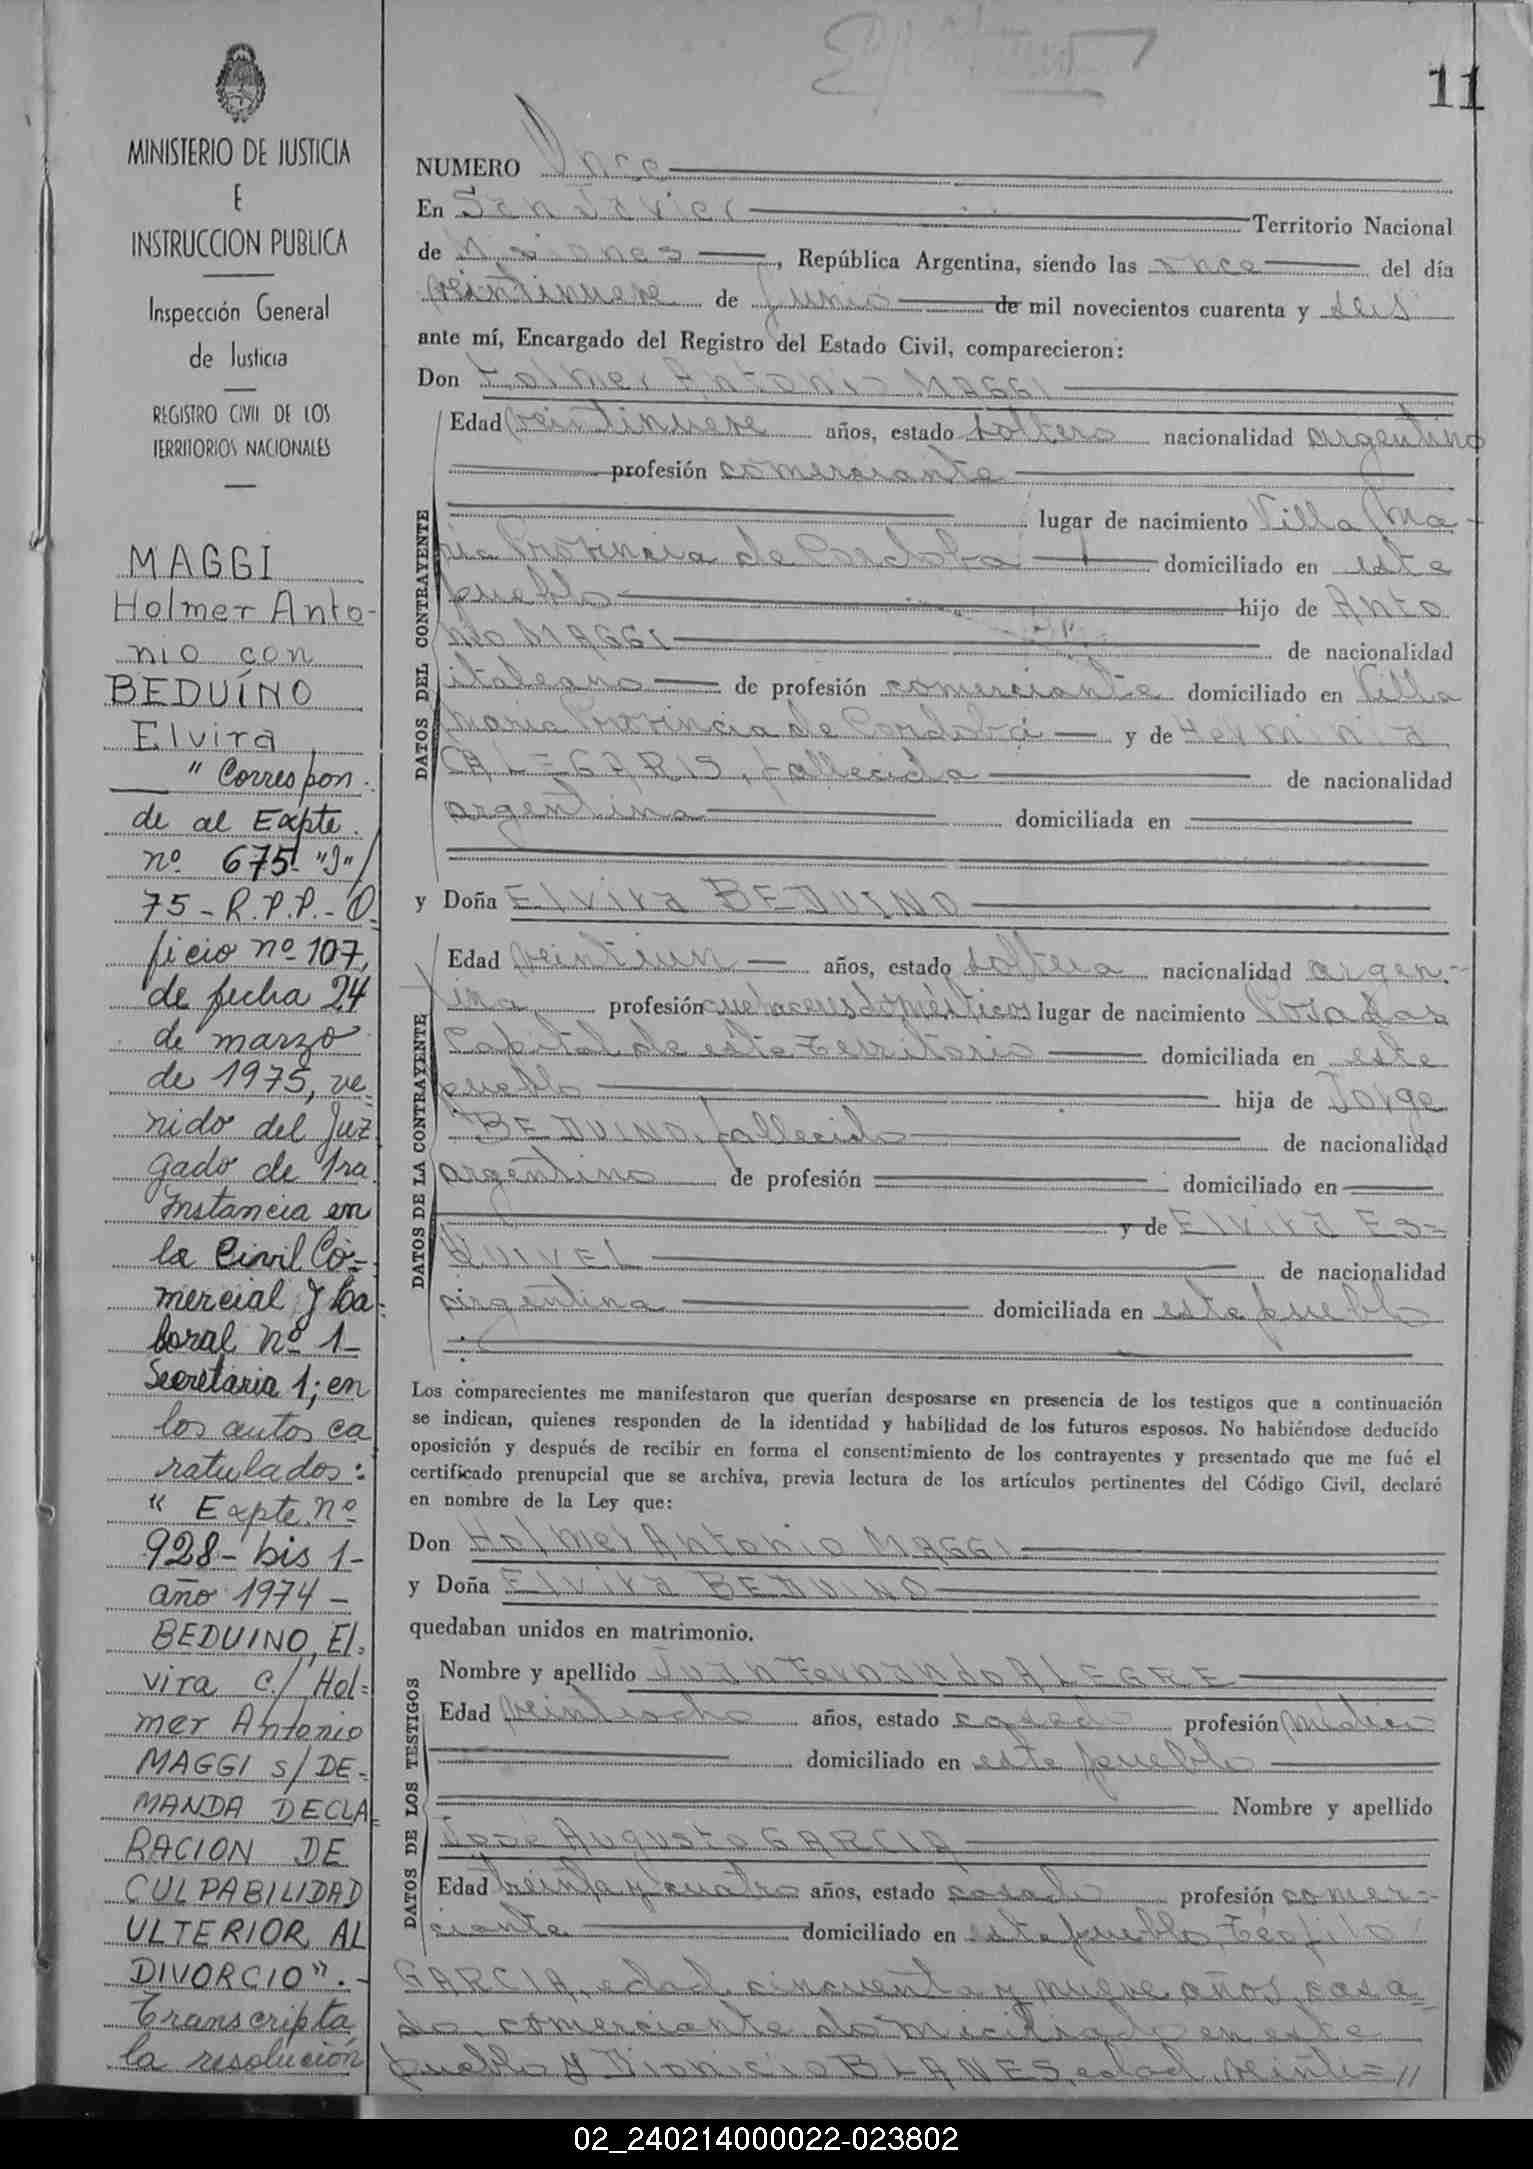 11
MINISTERIO DE JUSTICIA
E
INSTRUCCION PUBLICA
Inspección General
de Justicia
REGISTRO CIVIL DE LOS
TERRITORIOS NACIONALES
MAGGI
Holmer Anto-
nio con
BEDUÍNO
Elvira
" Correspon-
de al Expte.
nº 675-"J"/
75-R.P.P.-O
ficio nº 107,
de fecha 24
de marzo
de 1975, ve-
nido del Juz
gado de 1ra.
Instancia en
lo Civil Co=
mercial y La=
boral nº 1-
Secretaria 1; en
los autos ca
ratulados:
" Expte. nº
928-bis 1-
año 1974-
BEDUINO, El=
vira c/ Hol=
mer Antonio
MAGGI s/ DE-
MANDA DECLA=
RACION DE
CULPABILIDAD
ULTERIOR AL
DIVORCIO".-
Transcripta
la resolución
NUMERO Once
En San Javier Territorio Nacional
de Misiones, República Argentina, siendo las once del día
veintinueve de Junio de mil novecientos cuarenta y seis
ante mí, Encargado del Registro del Estado Civil, comparecieron:
Don Holmer Antonio MAGGI
DATOS DEL CONTRAYENTE
Edad veintinueve años, estado soltero nacionalidad argentino
profesión comerciante
lugar de nacimiento Villa Ma-
ria Provincia de Cordoba domiciliado en este
pueblo hijo de Anto
nio MAGGI de nacionalidad
italeano de profesión comerciante domiciliado en Villa
Maria Provincia de Cordoba y de Herminia
CALEGARIS, fallecida de nacionalidad
argentina domiciliada en
y Doña Elvira BEDUINO
DATOS DE LA CONTRAYENTE
Edad veintiun años, estado soltera nacionalidad argen-
tina profesión quehaceres domésticos lugar de nacimiento Posadas
Capital de este Territorio domiciliada en este
pueblo hija de Jorge
BEDUINO, fallecido de nacionalidad
argentino de profesión domiciliado en
y de Elvira ES=
QUIVEL de nacionalidad
argentina domiciliada en este pueblo
Los comparecientes me manifestaron que querían desposarse en presencia de los testigos que a continuación
se indican, quienes responden de la identidad y habilidad de los futuros esposos. No habiéndose deducido
oposición y después de recibir en forma el consentimiento de los contrayentes y presentado que me fué el
certificado prenupcial que se archiva, previa lectura de los artículos pertinentes del Código Civil, declaré
en nombre de la Ley que:
Don Holmer Antonio MAGGI
y Doña Elvira BEDUINO
quedaban unidos en matrimonio.
DATOS DE LOS TESTIGOS
Nombre y apellido Juan Fernando ALEGRE
Edad veintiocho años, estado casado profesión médico
domiciliado en este pueblo
Nombre y apellido
José Augusto GARCIA
Edad treinta y cuatro años, estado casado profesión comer=
ciante domiciliado en este pueblo, Teófilo
GARCIA, edad cincuenta y nueve años, casa=
do, comerciante domiciliado en este
pueblo y Dionicio BLANES, edad veinti=//
02_240214000022-023802